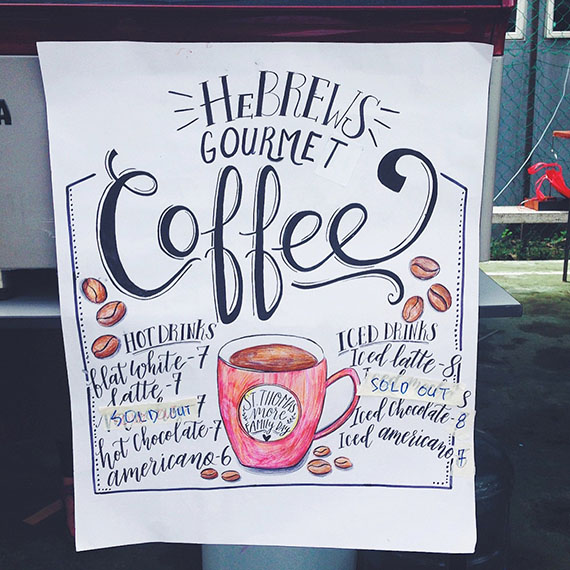 HeBREWS
GOURMET
Coffee
HOT DRINKS
flat white - 7
Latte - 7
SOLD OUT 7
hot Chocolate - 7
americano - 6
ST THOMAS
more
FAMILY DAY
ICED DRINKS
Iced latte - 8
SOLD OUT 8
Iced Chocolate - 8
Iced americano 7